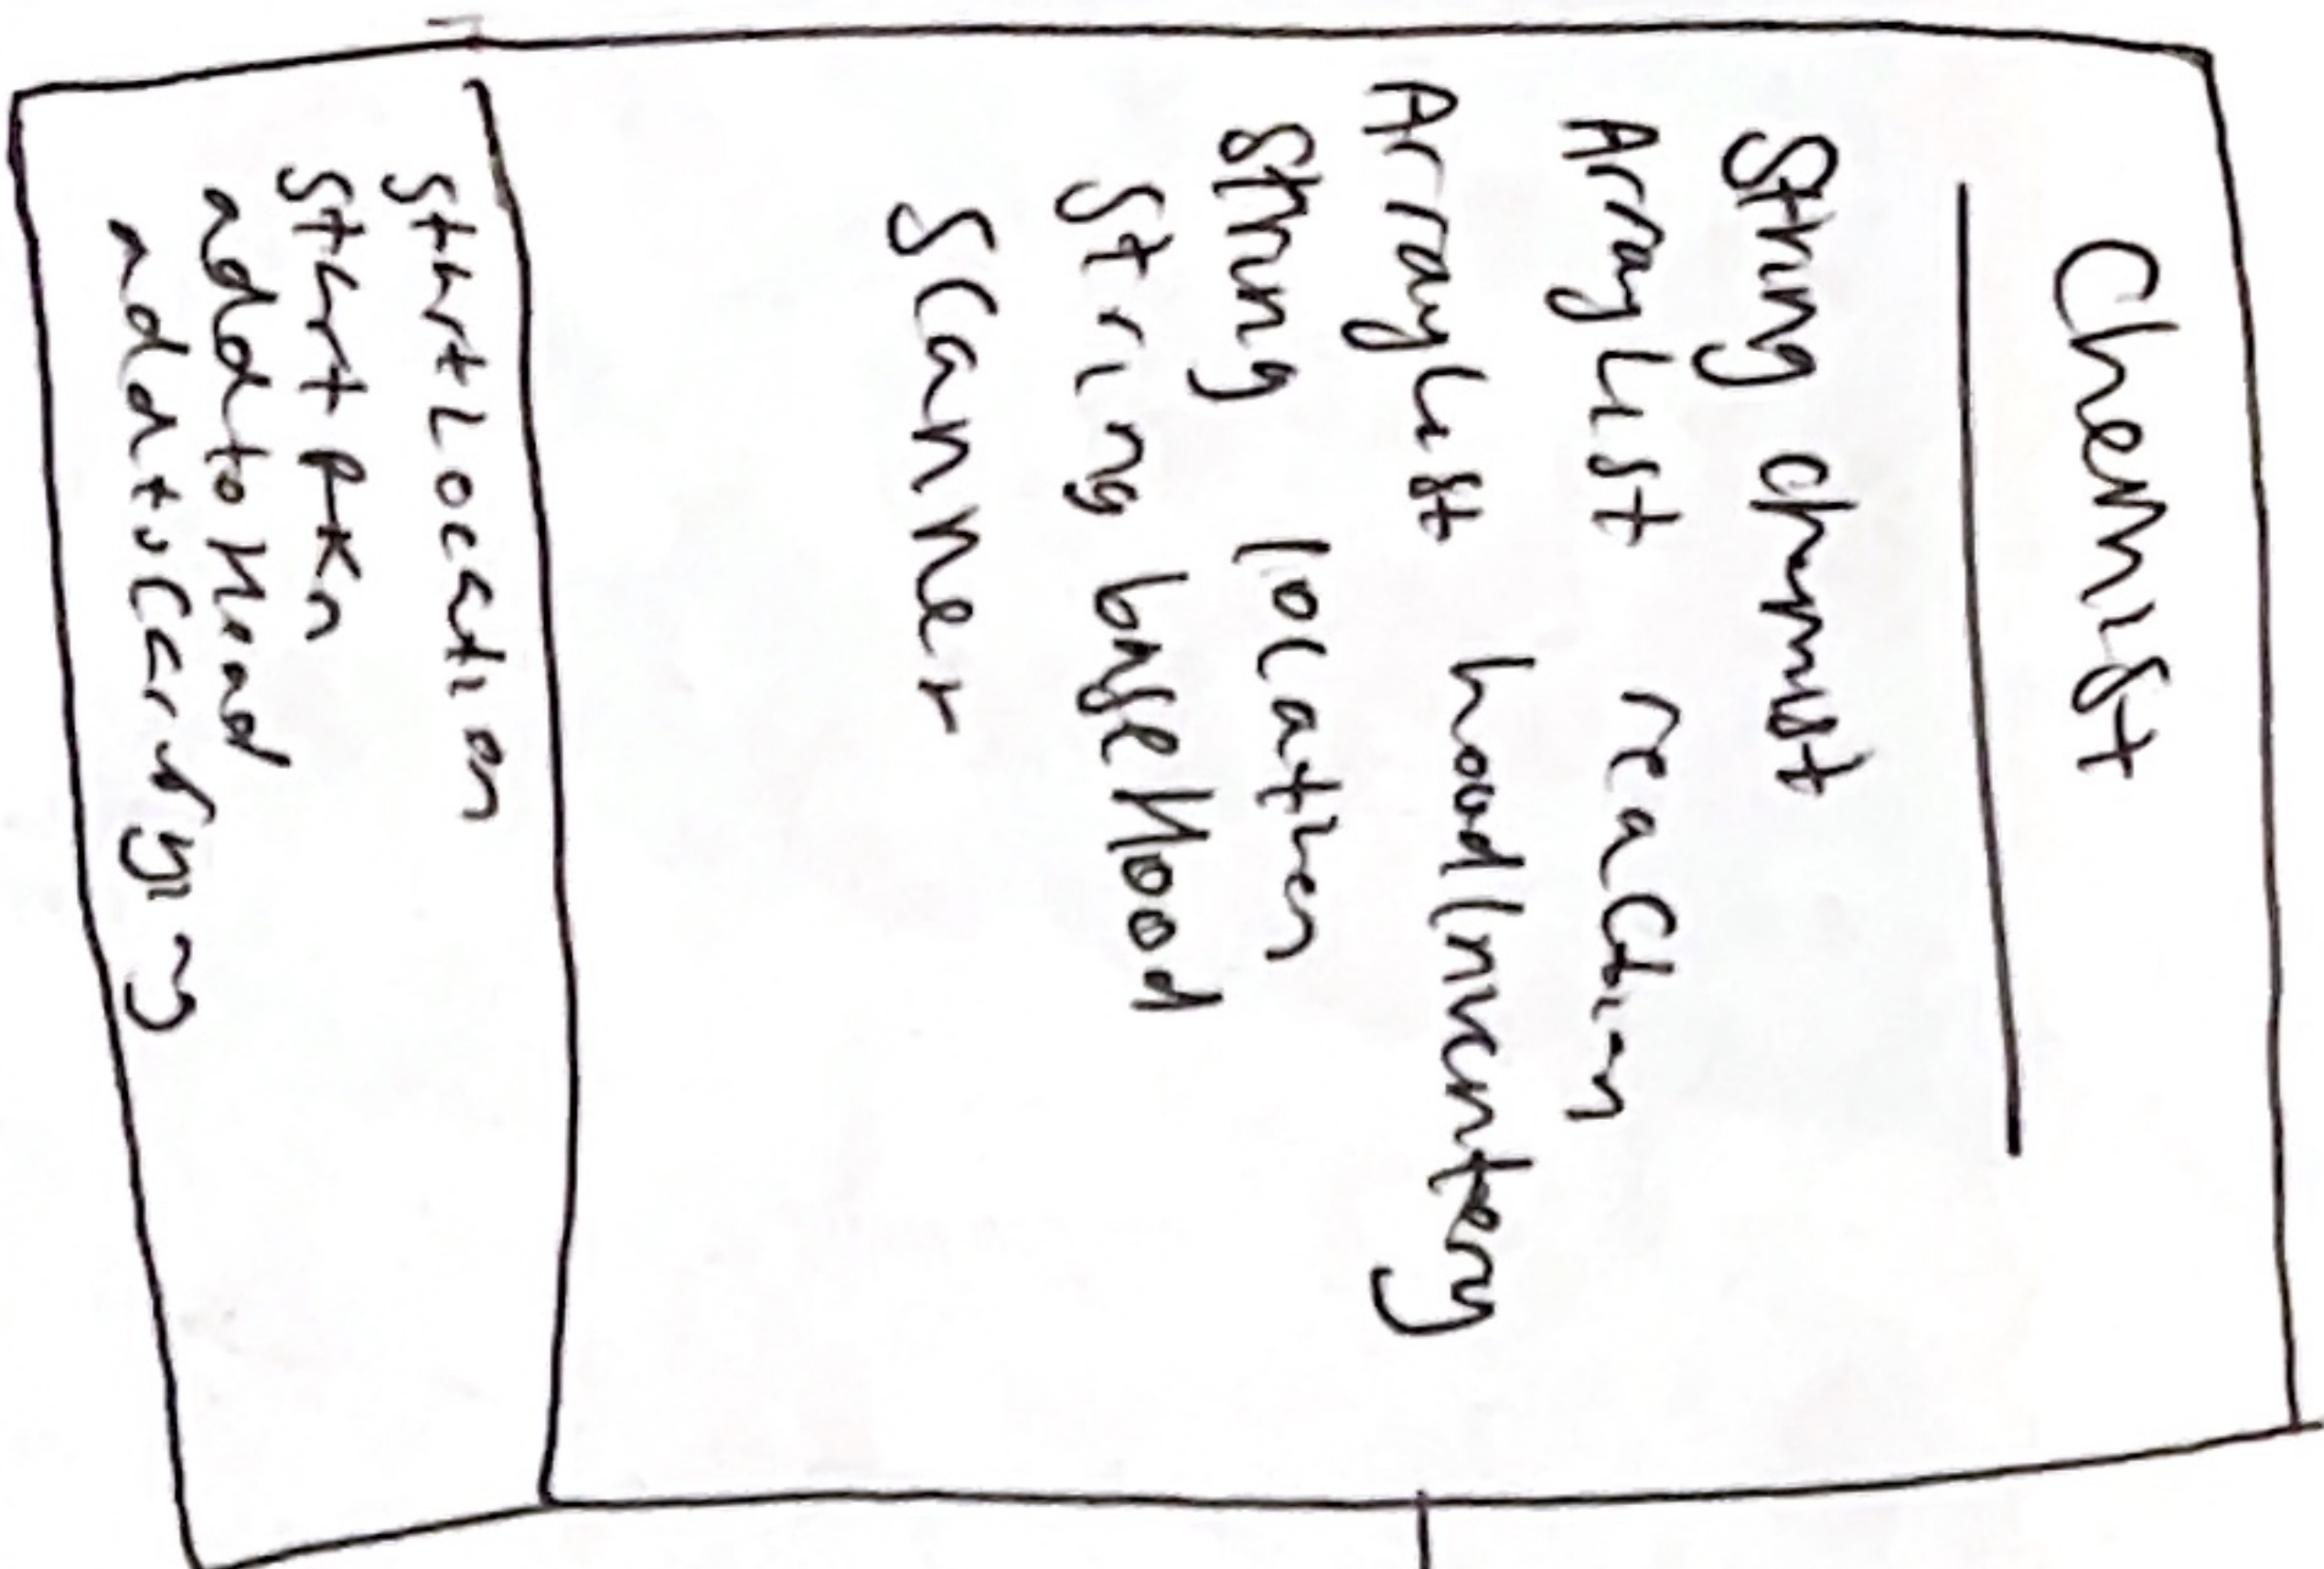 Chemist
String chemist
ArrayList reaction
ArrayList hoodInventery
String location
String baseHood
Scanner
startLocation
start
addtoHood
addtoCarrying